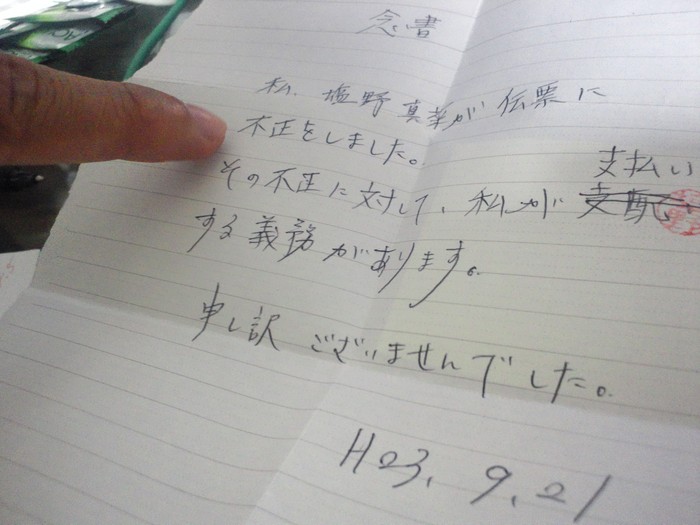 念書
私、塩野真華が伝票に
不正をしました。
その不正に対して、私が支配支払い
する義務があります。
申し訳ございませんでした。
H23.9.21